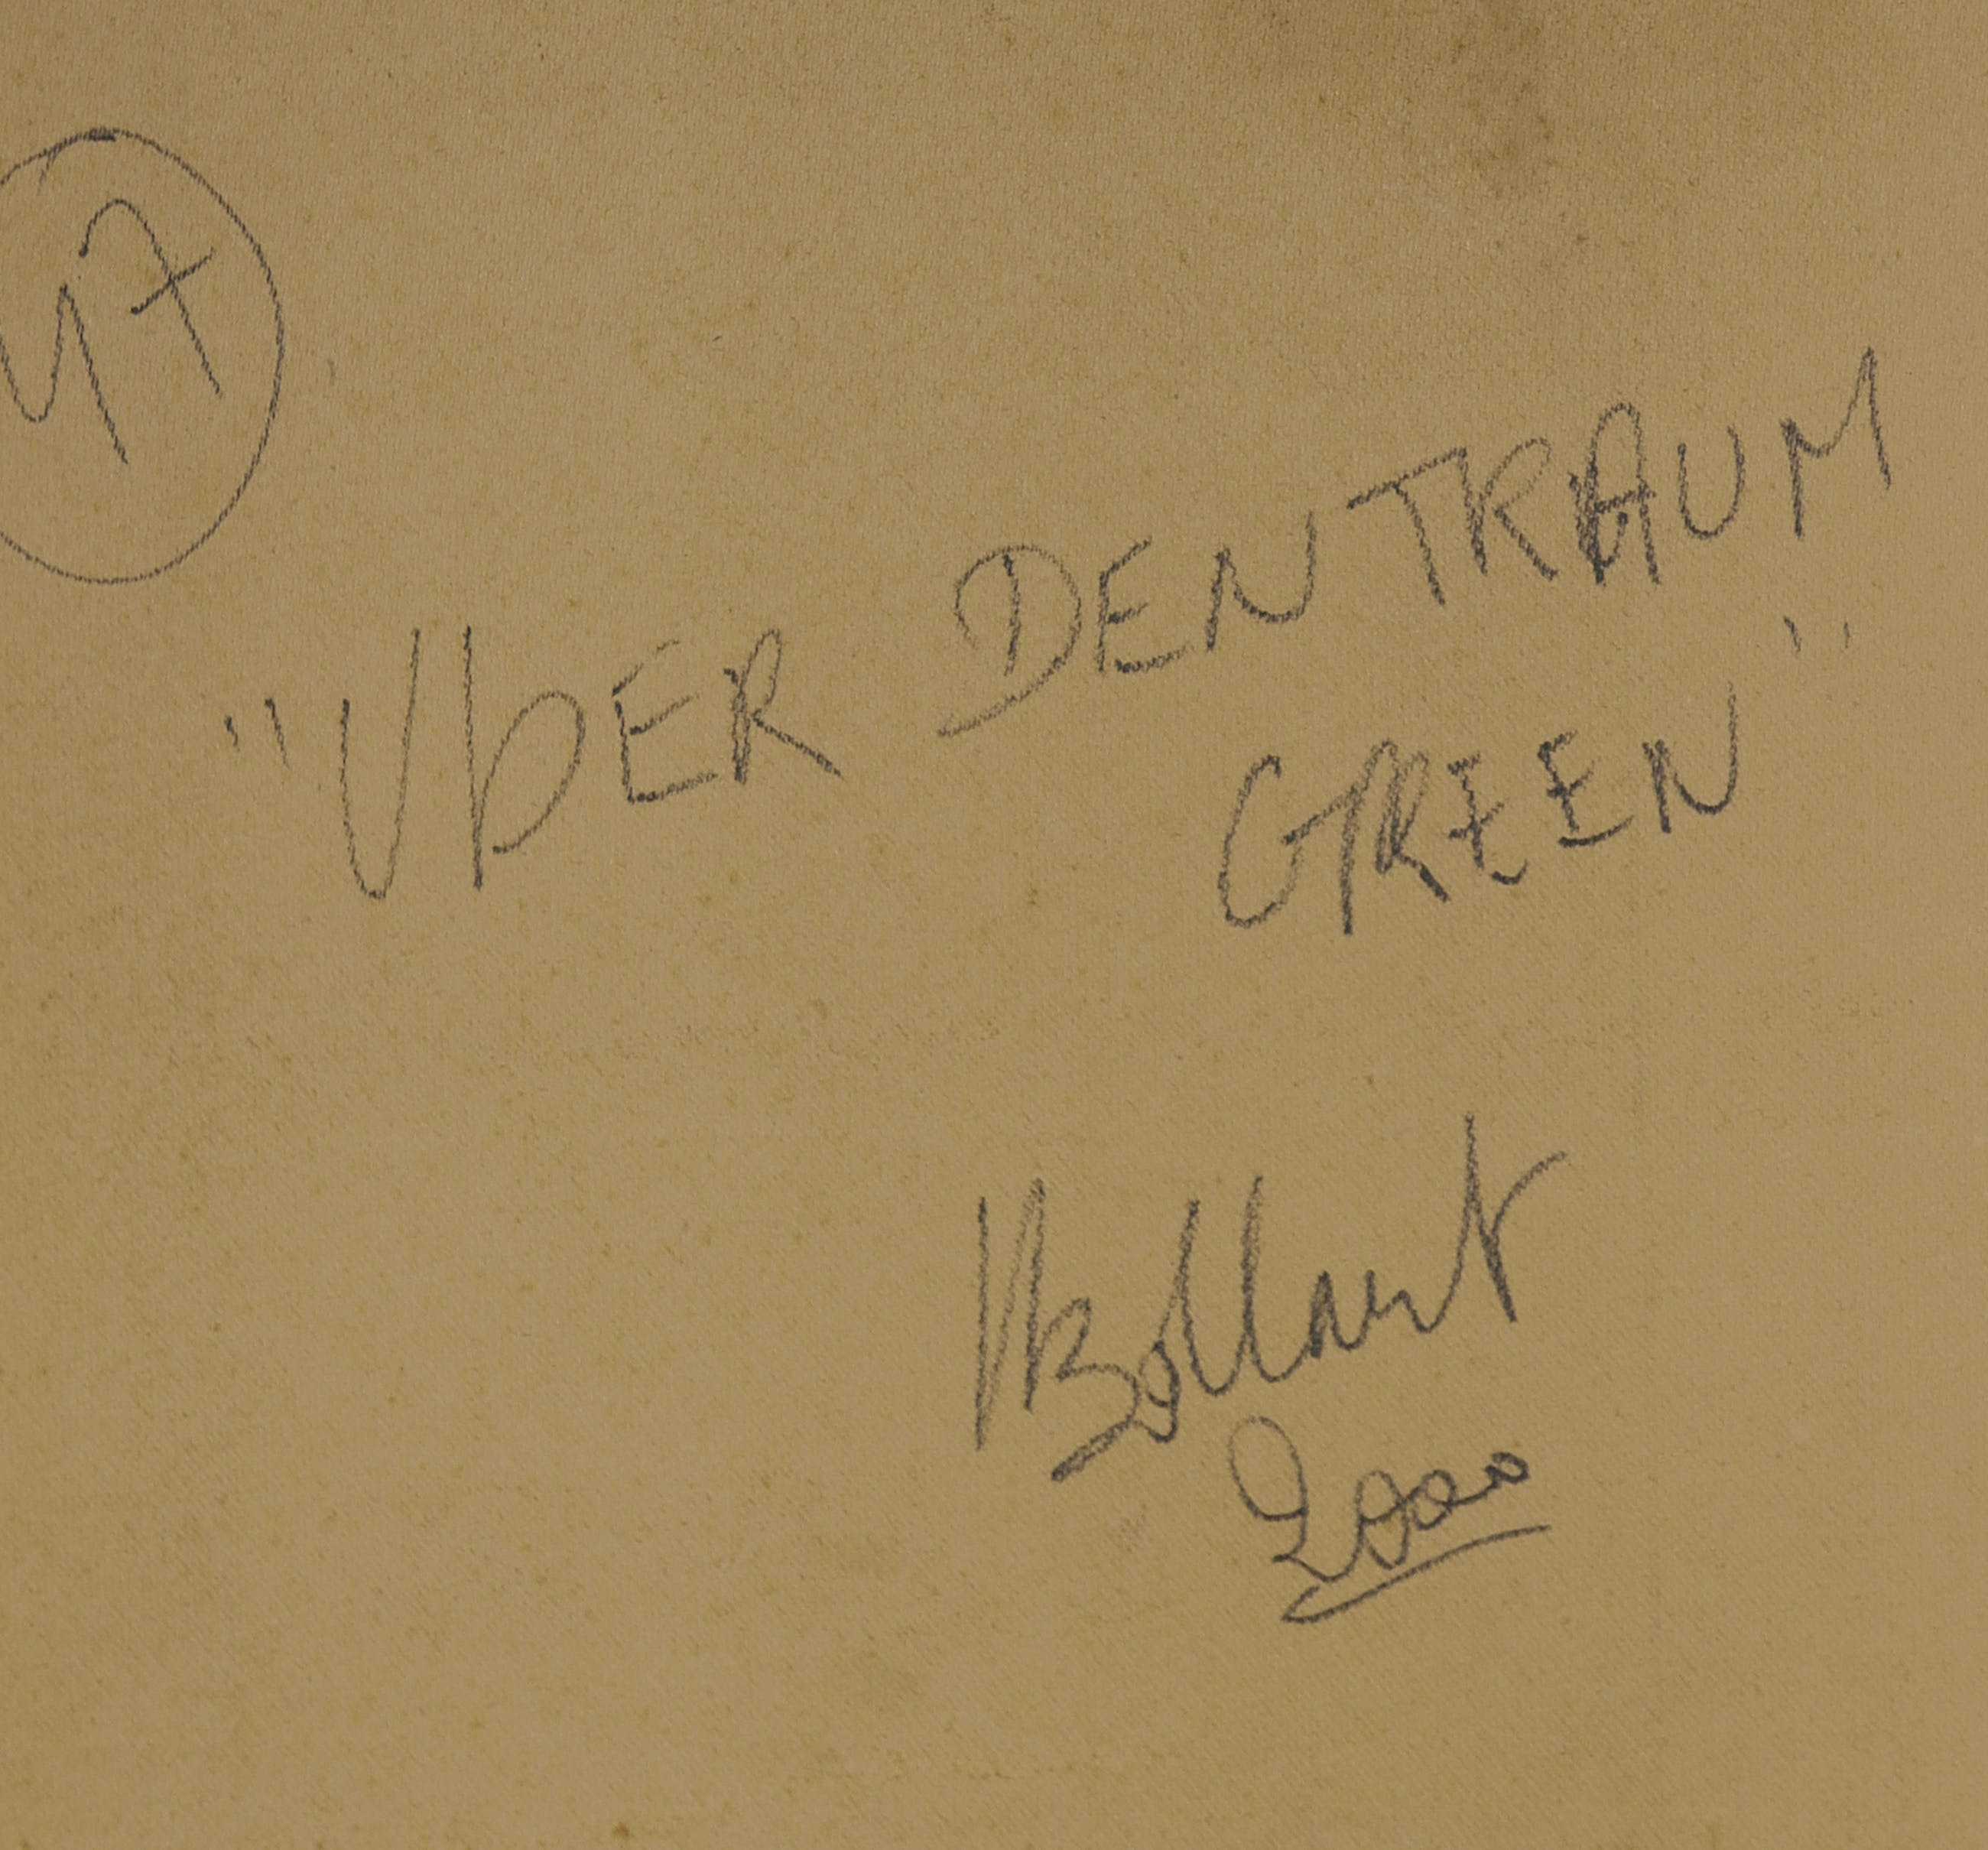 47
"UBER DEN TRAUM
GREEN"
2000